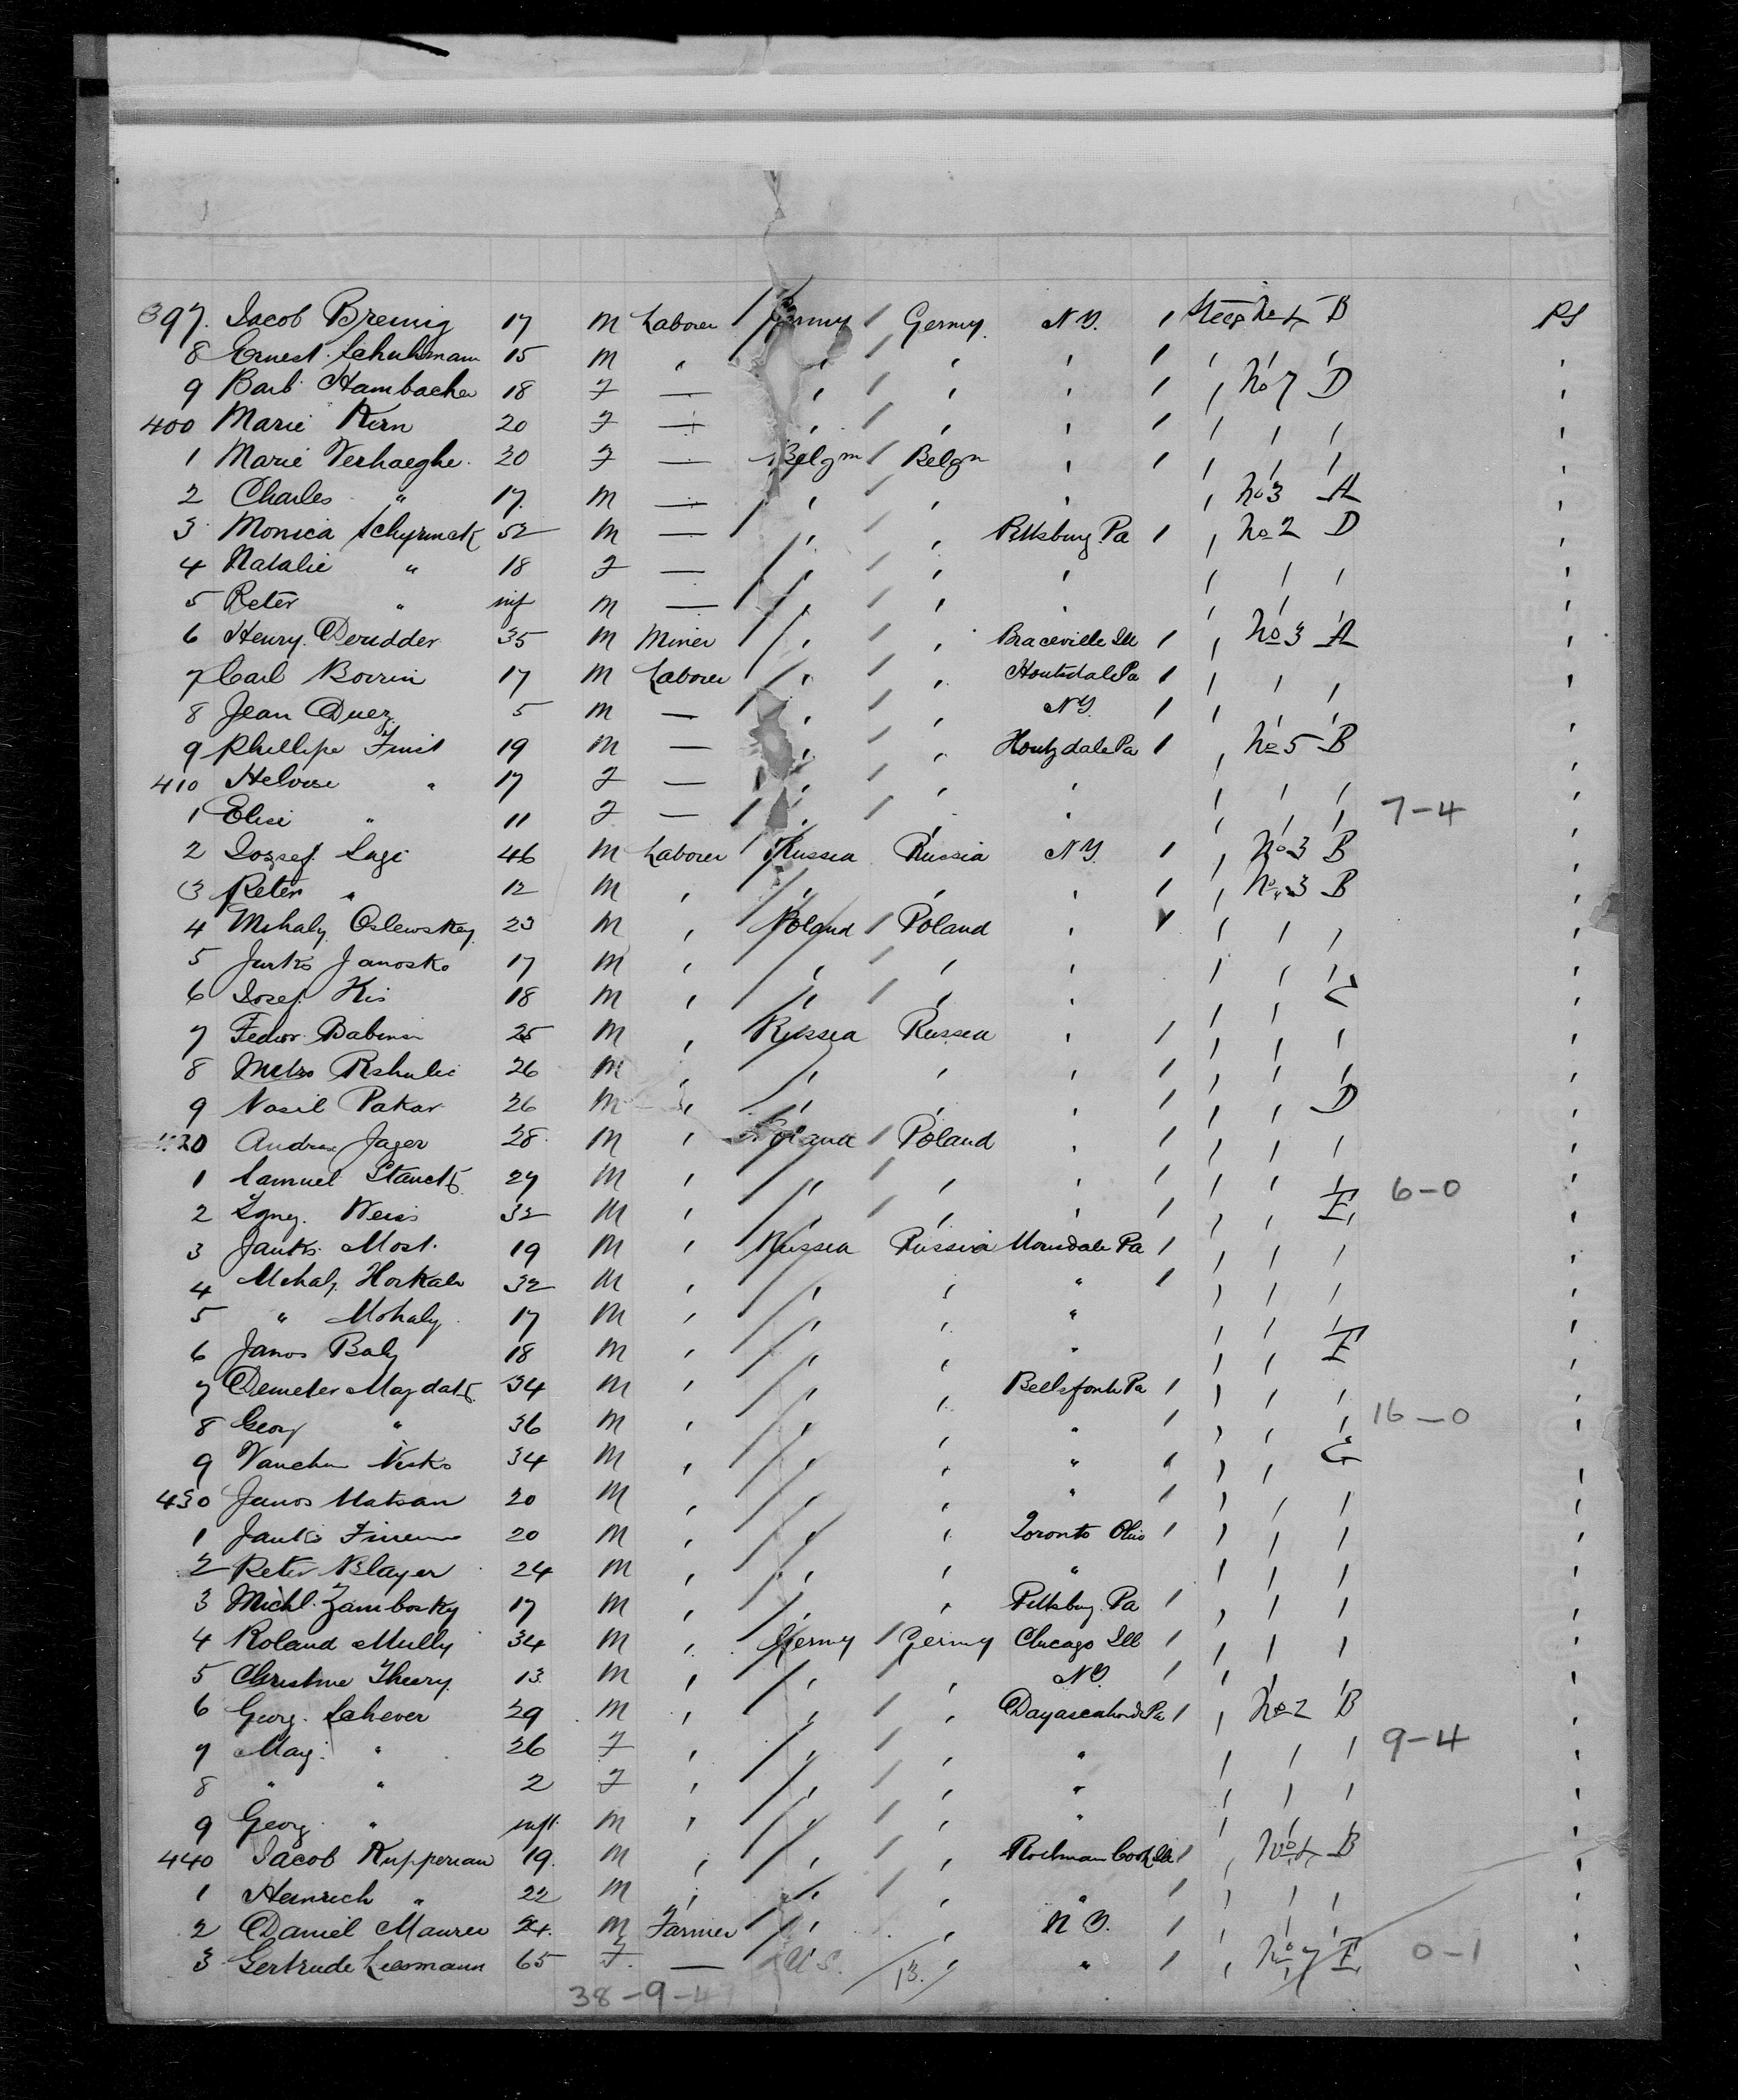 397. Jacob Breinig 17 M Laborer / Germy / Germy. N.Y. 1 Steer No 4 B PS
8 Ernest Schuhmann 15 M " " / " " 1 " " " "
9 Barb Hambacher 18 F — " / " " 1 " No 7 D "
400 Marie Kern 20 F — " / " " 1 " " " "
1 Marie Verhaeghe 30 F — Belgm / Belgm " 1 " " " "
2 Charles " 17. M — " / " " " No 3 A "
3 Monica Schyrinck 52 M — / " / " Pittsburg. Pa 1 " No 2 D "
4 Natalie " 18 F — / " / " " " " " "
5 Peter " inf M — / " / " " " " " "
6 Henry. Derudder 35 M Miner / " / " Braceville Ill 1 " No 3 A "
7 Carl Borrin 17 M Laborer / " / " Houtzdale Pa 1 " " " "
8 Jean Duez 5 M — / " / " N.Y. 1 " " " "
9 Phillipe Finit 19 M — " / " Houtzdale Pa 1 " No 5 B "
410 Heloise " 17 F — / " / " " " " " "
1 Elise " 11 F — / " / " " " " " 7-4 "
2 Jozsef Lagi 46 M Laborer / Russia Russia N.Y. 1 " No 3 B "
3 Peter " 12 M " / " " " 1 " No 3 B "
4 Mihaly Oslewskey 23 M " Poland / Poland " 1 " " " "
5 Jurko Janosko 17 M " / " / " " " " " "
6 Josef Kis 18 M " / " / " " " " C "
7 Fedor Babinsi 25 M " Russia Russia " 1 " " " "
8 Metro Rshulic 26 M " / " " " 1 " " " "
9 Vasil Pakar 26 M " / " " " 1 " " D "
420 Andras Jager 28 M " Poland / Poland " 1 " " " "
1 Samuel Stanck 27 M " / " / " " 1 " " " 6-0 "
2 Igney. Weiss 32 M " / " / " " 1 " " E "
3 Janko Most. 19 M " Russia Russia Morrisdale Pa 1 " " " "
4 Mihaly Horkale 32 M " / " " " 1 " " " "
5 " Mohaly 17 M " / " " " " " " "
6 Janos Baly 18 M " / " " " " " F "
7 Demeter Magdak 34 M " / " " Bellefonte Pa 1 " " " "
8 Georg " 36 M " / " " " 1 " " " 16-0 "
9 Vanchu Nisko 34 M " / " " " 1 " " G "
430 Janos Matsan 20 M " / " " " 1 " " " "
1 Janko 20 M " / " " Toronto Ohio 1 " " " "
2 Peter Blayer 24 M " / " " " " " " "
3 Michl. Zambosky 17 M " / " " Pittsburg. Pa 1 " " " "
4 Roland Mully 34 M " Germy / Germy Chicago Ill 1 " " " "
5 Christine Theery 13. M " / " / " N.Y. 1 " " " "
6 Georg. Schever 29 M " / " / " Pa 1 " No 2 B "
7 Mag. " 26 F " / " / " " " " " 9-4 "
8 " " 2 F " / " / " " " " " "
9 Georg " inft M " / " / " " " " " "
440 Jacob Kupperian 19. M " / " / " Cook Ill 1 " No 4 B "
1 Heinrich " 22 M " / " / " " 1 " " " "
2 Daniel Maurer 24. M Farmer / " " N.Y. 1 " " " "
3 Gertrude Leesmann 65 F. — / U.S. / 13. " " 1 " No 7 E 0-1 "
38-9-4